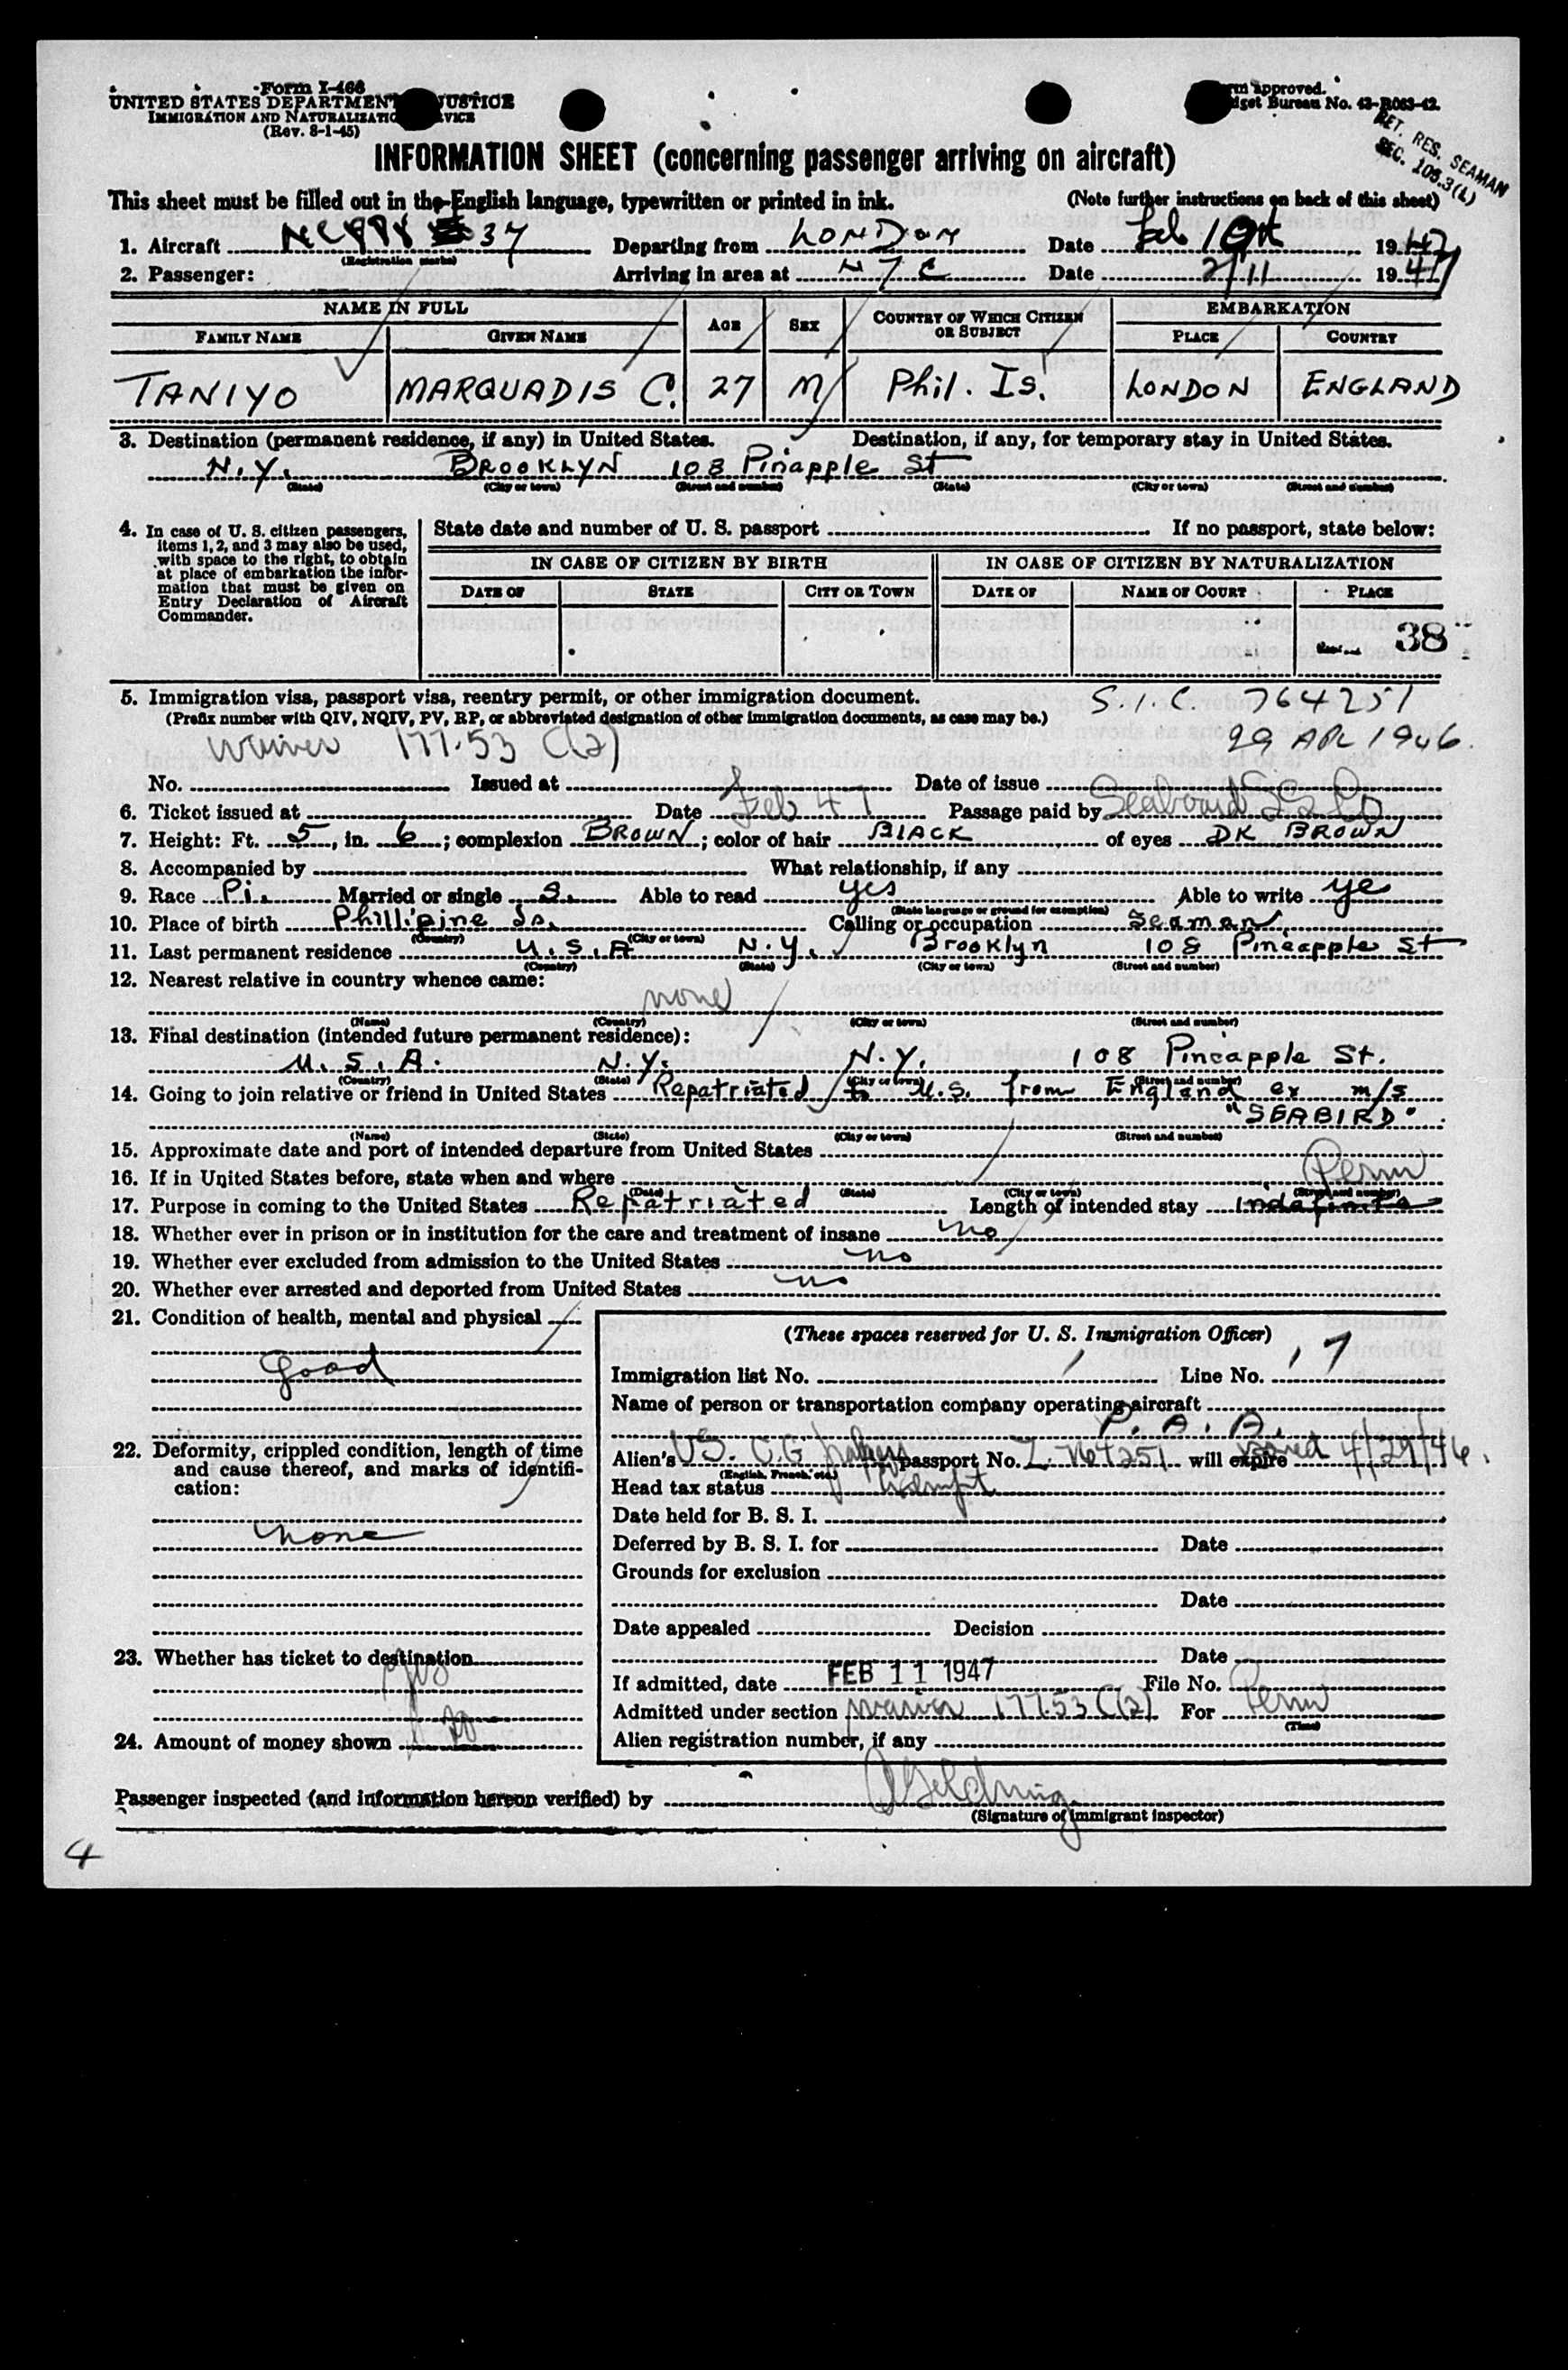 Form I-466
UNITED STATES DEPARTMENT JUSTICE
IMMIGRATION AND NATURALIZATION
(Rev. 8-1-45)
approved.
Budget Bureau No. 43-R063-42.
RET. RES. SEAMAN
SEC. 105.3(L)
INFORMATION SHEET (concerning passenger arriving on aircraft)
This sheet must be filled out in the English language, typewritten or printed in ink. (Note further instructions on back of this sheet)
1. Aircraft 37 Departing from LONDON Date Feb 10th 1947
(Registration marks)
2. Passenger: Arriving in area at Date 2/11 1947
NAME IN FULL AGE SEX COUNTRY OF WHICH CITIZEN OR SUBJECT EMBARKATION
FAMILY NAME GIVEN NAME PLACE COUNTRY
TANIYO MARQUADIS C. 27 M Phil. Is. LONDON ENGLAND
3. Destination (permanent residence, if any) in United States. Destination, if any, for temporary stay in United States.
N.Y. BROOKLYN 108 Pinapple St
(State) (City or town) (Street and number) (State) (City or town) (Street and number)
4. In case of U. S. citizen passengers, items 1, 2, and 3 may also be used, with space to the right, to obtain at place of embarkation the information that must be given on Entry Declaration of Aircraft Commander.
State date and number of U. S. passport If no passport, state below:
IN CASE OF CITIZEN BY BIRTH IN CASE OF CITIZEN BY NATURALIZATION
DATE OF STATE CITY OR TOWN DATE OF NAME OF COURT PLACE
38
5. Immigration visa, passport visa, reentry permit, or other immigration document. S.I.C. 764251
(Prefix number with QIV, NQIV, PV, RP, or abbreviated designation of other immigration documents, as case may be.)
29 APR 1946.
Waiver 177.53 C(2)
No. Issued at Date of issue
6. Ticket issued at Date Feb 47 Passage paid by Seaboard SS Co
7. Height: Ft. 5, in. 6; complexion BROWN; color of hair BLACK of eyes DK BROWN
8. Accompanied by What relationship, if any
9. Race P.i. Married or single S. Able to read yes Able to write ye
(State language or ground for exemption)
10. Place of birth Phillipine Is. Calling or occupation Seaman
(Country) (City or town)
11. Last permanent residence U.S.A N.Y. Brooklyn 108 Pineapple St
(Country) (State) (City or town) (Street and number)
12. Nearest relative in country whence came:
none
(Name) (Country) (City or town) (Street and number)
13. Final destination (intended future permanent residence):
U.S.A. N.Y. N.Y. 108 Pineapple St.
(Country) (State) (City or town) (Street and number)
14. Going to join relative or friend in United States Repatriated to U.S. from England ex m/s
"SEABIRD"
(Name) (State) (City or town) (Street and number)
15. Approximate date and port of intended departure from United States
16. If in United States before, state when and where
(Date) (State) (City or town) (Street and number)
Perm
17. Purpose in coming to the United States Repatriated Length of intended stay Indefinite
18. Whether ever in prison or in institution for the care and treatment of insane no
19. Whether ever excluded from admission to the United States no
20. Whether ever arrested and deported from United States no
21. Condition of health, mental and physical
Good
22. Deformity, crippled condition, length of time and cause thereof, and marks of identification:
None
23. Whether has ticket to destination
yes
24. Amount of money shown
(These spaces reserved for U. S. Immigration Officer)
Immigration list No. Line No. 17
Name of person or transportation company operating aircraft
P. A. A.
Alien's U.S. C.G. papers passport No. Z 764251 will expire issued 4/29/46.
(English, French, etc.)
Head tax status exempt
Date held for B. S. I.
Deferred by B. S. I. for Date
Grounds for exclusion
Date
Date appealed Decision
Date
If admitted, date FEB 11 1947 File No.
Admitted under section waiver 177.53 C(2) For Perm
(Time)
Alien registration number, if any
Passenger inspected (and information hereon verified) by
(Signature of immigrant inspector)
4